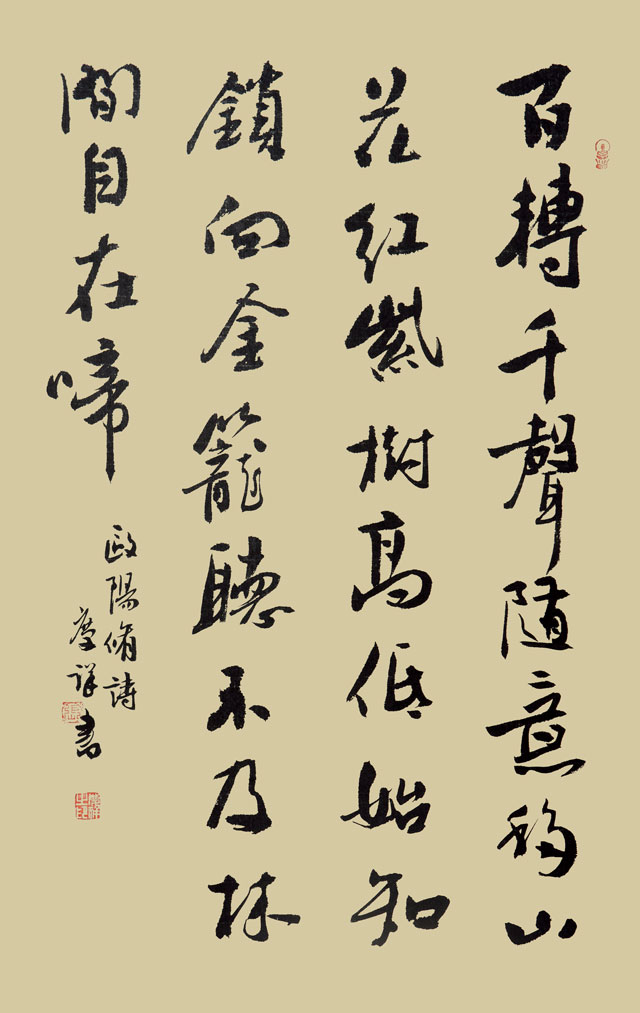 百轉千聲隨意移山
花紅紫樹高低始知
鎖向金籠聽不及林
間自在啼
歐陽脩詩
慶祥書